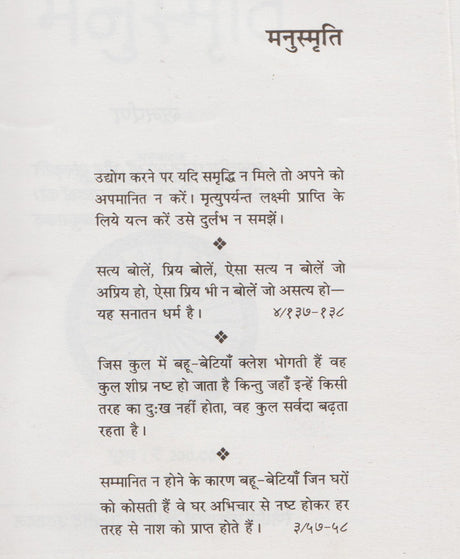 मनुस्मृति
उद्योग करने पर यदि समृद्धि न मिले तो अपने को
अपमानित न करें। मृत्युपर्यन्त लक्ष्मी प्राप्ति के
लिये यत्न करें उसे दुर्लभ न समझें।
सत्य बोलें, प्रिय बोलें, ऐसा सत्य न बोलें जो
अप्रिय हो, ऐसा प्रिय भी न बोलें जो असत्य हो—
यह सनातन धर्म है। ४/१३७-१३८
जिस कुल में बहू-बेटियाँ क्लेश भोगती हैं वह
कुल शीघ्र नष्ट हो जाता है किन्तु जहाँ इन्हें किसी
तरह का दुःख नहीं होता, वह कुल सर्वदा बढ़ता
रहता है।
सम्मानित न होने के कारण बहू-बेटियाँ जिन घरों
को कोसती हैं वे घर अभिचार से नष्ट होकर हर
तरह से नाश को प्राप्त होते हैं। ३/५७-५८